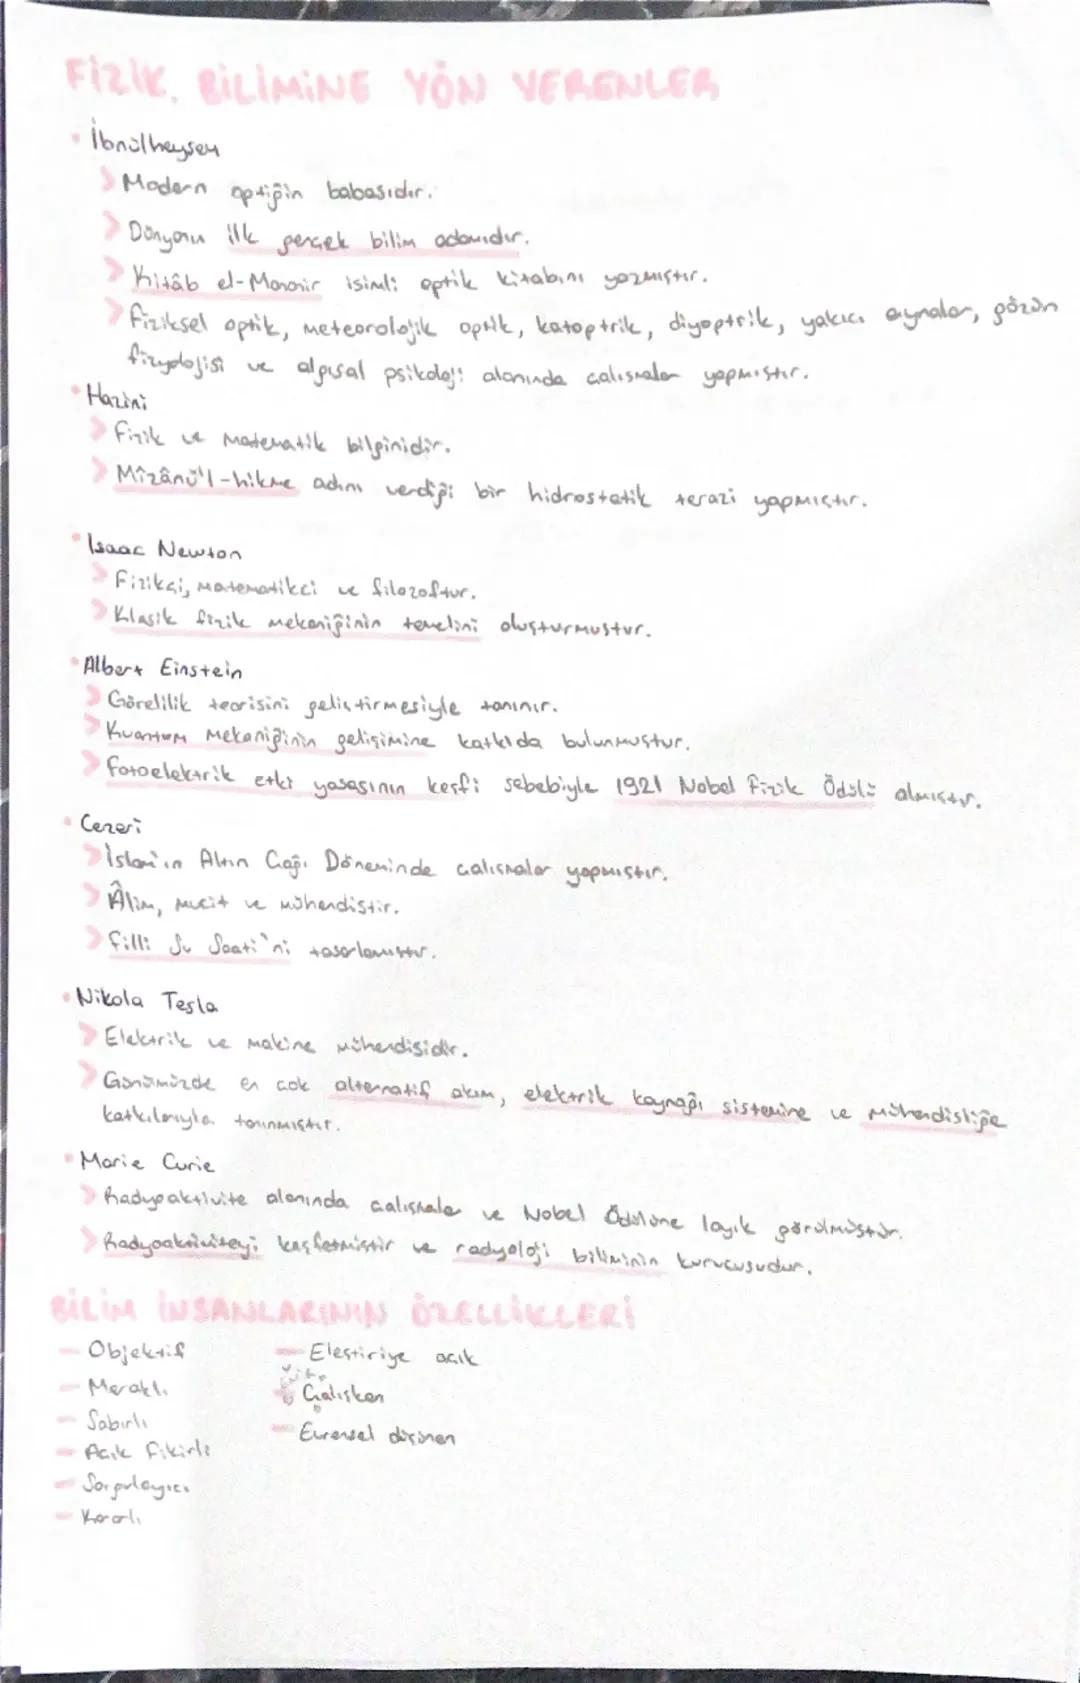 FİZİK BİLİMİNE YÖN VERENLER
• İbnülheysem
> Modern optiğin babasıdır.
> Dünyanın ilk gerçek bilim adamıdır.
> Kitâb el-Manazir isimli optik kitabını yazmıştır.
> Fiziksel optik, meteorolojik optik, katoptrik, diyoptrik, yakıcı aynalar, gözün
fizyolojisi ve algısal psikoloji alanında çalışmalar yapmıştır.
• Hazini
> Fizik ve matematik bilginidir.
> Mîzânü'l-hikme adını verdiği bir hidrostatik terazi yapmıştır.
• Isaac Newton
> Fizikçi, matematikçi ve filozoftur.
> Klasik fizik mekaniğinin temelini oluşturmuştur.
• Albert Einstein
> Görelilik teorisini geliştirmesiyle tanınır.
> Kuantum mekaniğinin gelişimine katkıda bulunmuştur.
> Fotoelektrik etki yasasının keşfi sebebiyle 1921 Nobel Fizik Ödülü almıştır.
• Cezeri
> İslam'ın Altın Çağı Döneminde çalışmalar yapmıştır.
> Âlim, mucit ve mühendistir.
> Filli Su Saati'ni tasarlamıştır.
• Nikola Tesla
> Elektrik ve makine mühendisidir.
> Günümüzde en çok alternatif akım, elektrik kaynağı sistemine ve mühendisliğe
katkılarıyla tanınmıştır.
• Marie Curie
> Radyoaktivite alanında çalışmalar ve Nobel Ödülüne layık görülmüştür.
> Radyoaktiviteyi keşfetmiştir ve radyoloji biliminin kurucusudur.
BİLİM İNSANLARININ ÖZELLİKLERİ
- Objektif
- Meraklı
- Sabırlı
- Açık fikirli
- Sorgulayıcı
- Kararlı
- Eleştiriye açık
- Çalışkan
- Evrensel düşünen